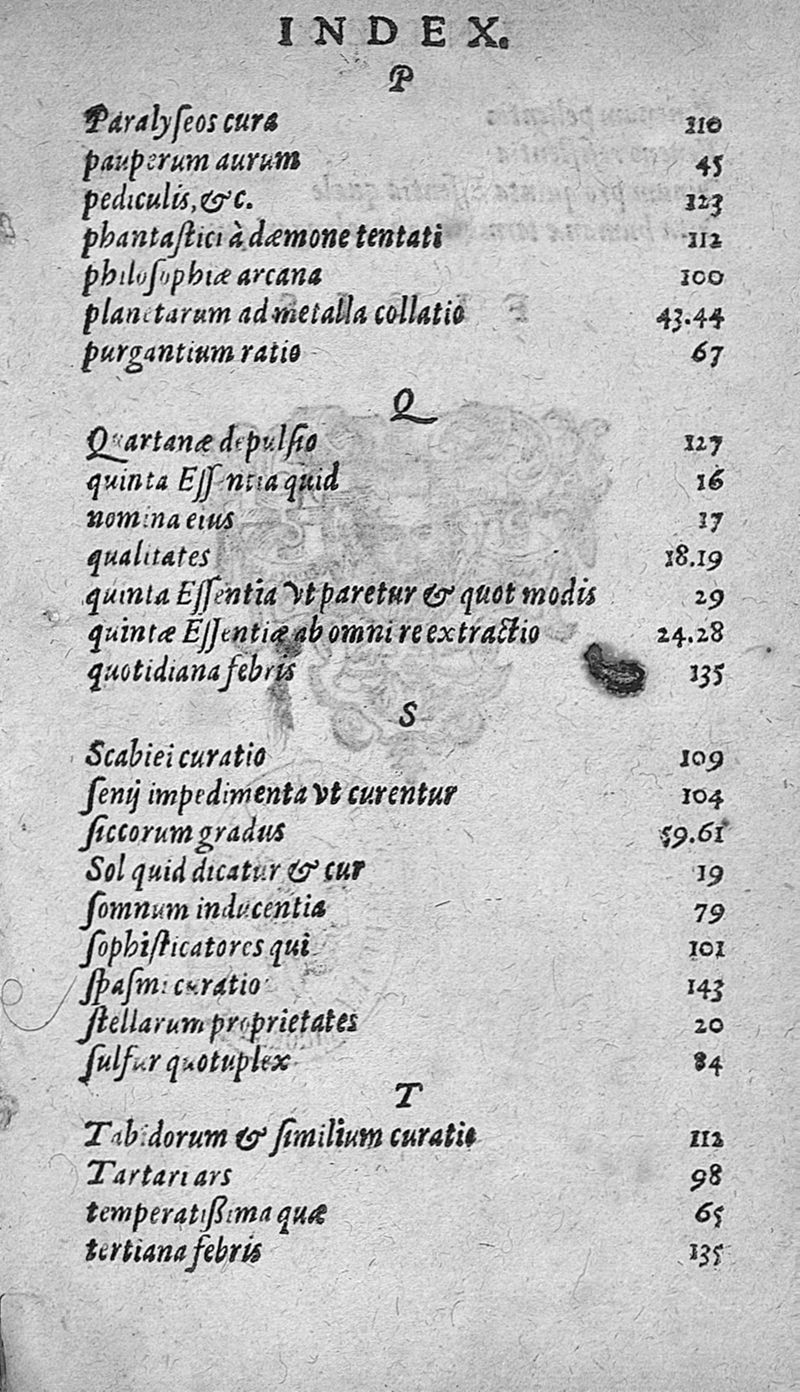 INDEX.
P
Paralyſeos cura 110
pauperum aurum 45
pediculis, &c. 123
phantaſtici à dæmone tentati 112
philoſophiæ arcana 100
planetarum ad metalla collatio 43.44
purgantium ratio 67
Q
Quartanæ depulſio 127
quinta Eſſentia quid 16
nomina eius 17
qualitates 18.19
quinta Eſſentia vt paretur & quot modis 29
quintæ Eſſentiæ ab omni re extractio 24.28
quotidiana febris 135
S
Scabiei curatio 109
ſenij impedimenta vt curentur 104
ſiccorum gradus 59.61
Sol quid dicatur & cur 19
ſomnum inducentia 79
ſophiſticatores qui 101
ſpaſmi curatio 143
ſtellarum proprietates 20
ſulfur quotuplex 84
T
Tabidorum & ſimilium curatio 112
Tartari ars 98
temperatißima quæ 65
tertiana febris 135